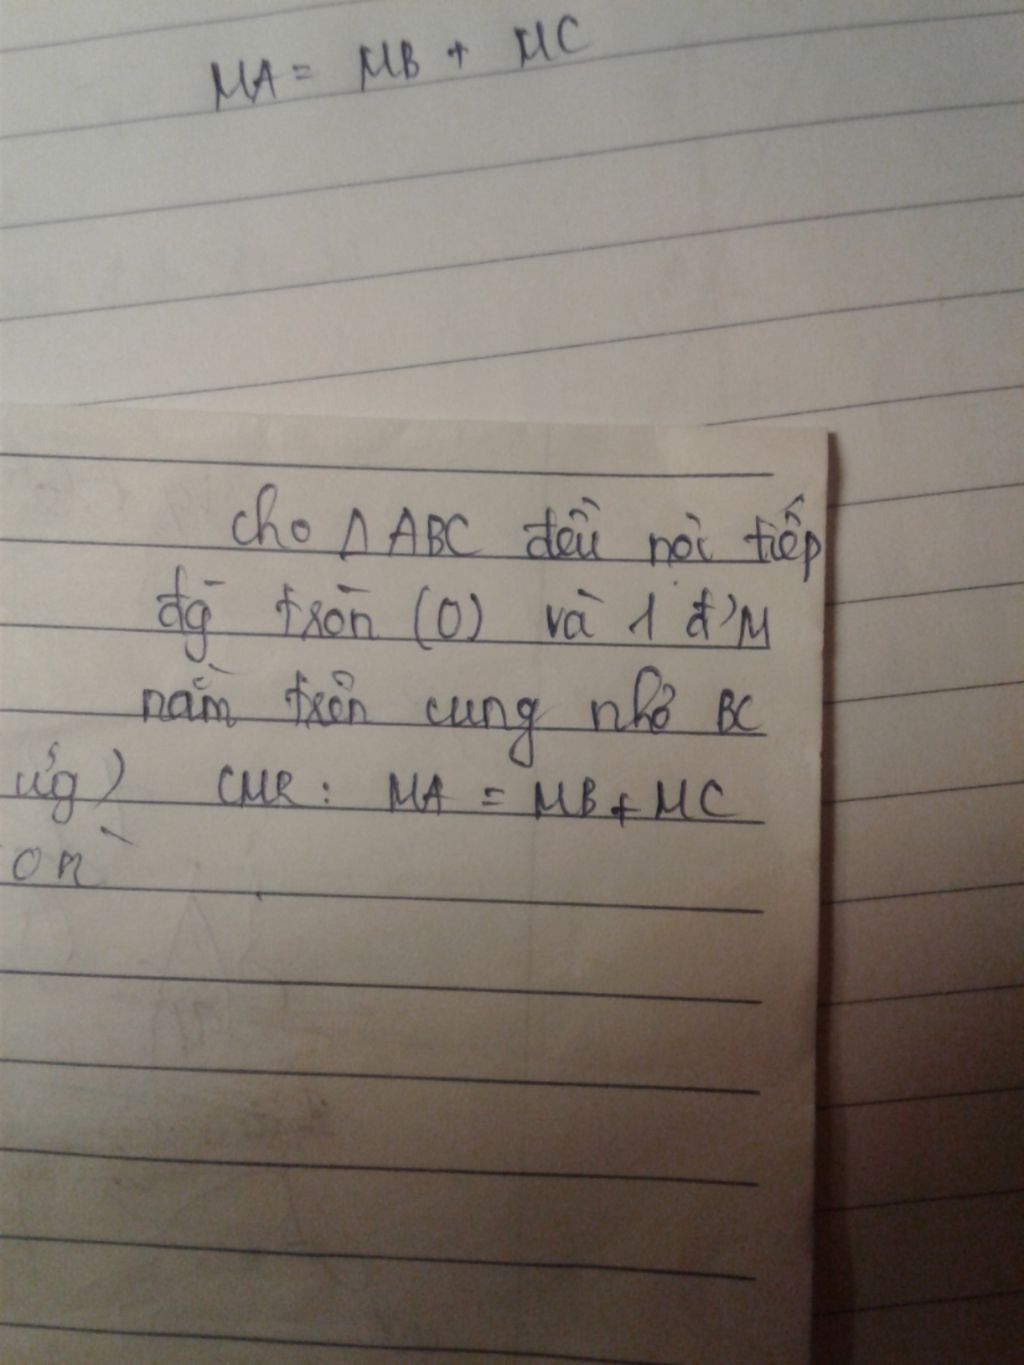 MA = MB + MC
cho Δ ABC đều nội tiếp
đg tròn (O) và 1 đ' M
nằm trên cung nhỏ BC
ứg) CMR : MA = MB + MC
òn